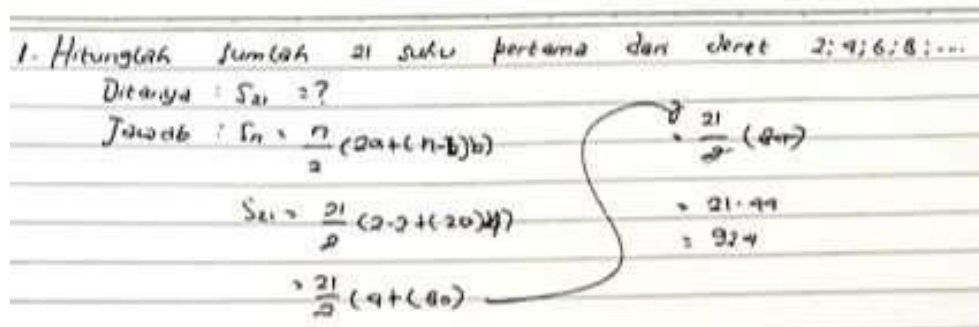 1. Hitunglah Jumlah 21 suku pertama dari deret 2; 4; 6; 8; ...
Ditanya : S₂₁ = ?
Jawab : Sn = n/2 (2a + (n-1)b)
S₂₁ = 21/2 (2.2 + (20)4)
= 21/2 (4 + (80)
= 21/2 (84)
= 21.44
= 924